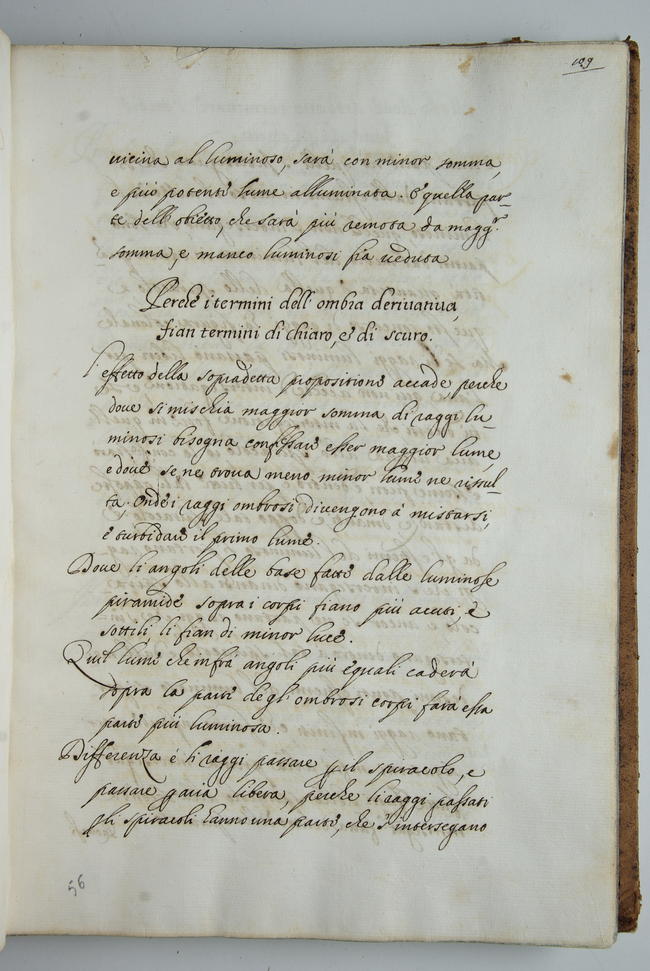 129
uicina al luminoso, sarà con minor somma,
e più potente lume alluminata. E quella par-
te dell'obietto, che sarà più remota da magg.r
somma, e manco luminosi fia ueduta
Perche i termini dell'ombra deriuatiua,
fian termini di chiaro, e di scuro.
l'effetto della sopradetta propositione accade, perche
doue si mischia maggior somma di raggi lu-
minosi bisogna confessare esser maggior lume,
e doue se ne troua meno minor lume ne risul-
ta. Onde i raggi ombrosi diuengono à mistarsi,
e turbidare il primo lume.
Doue li angoli delle base fatte dalle luminose
piramide sopra i corpi fiano più acuti, e
sottili, li fian di minor luce.
Quel lume che infrà angoli più equali caderà
sopra la parte degl'ombrosi corpi farà essa
parte più luminosa.
Differenza è li raggi passare p il spiracolo, e
passare p aria libera, perche li raggi passati
p li spiracoli hanno una parte, che s'intersegano
56